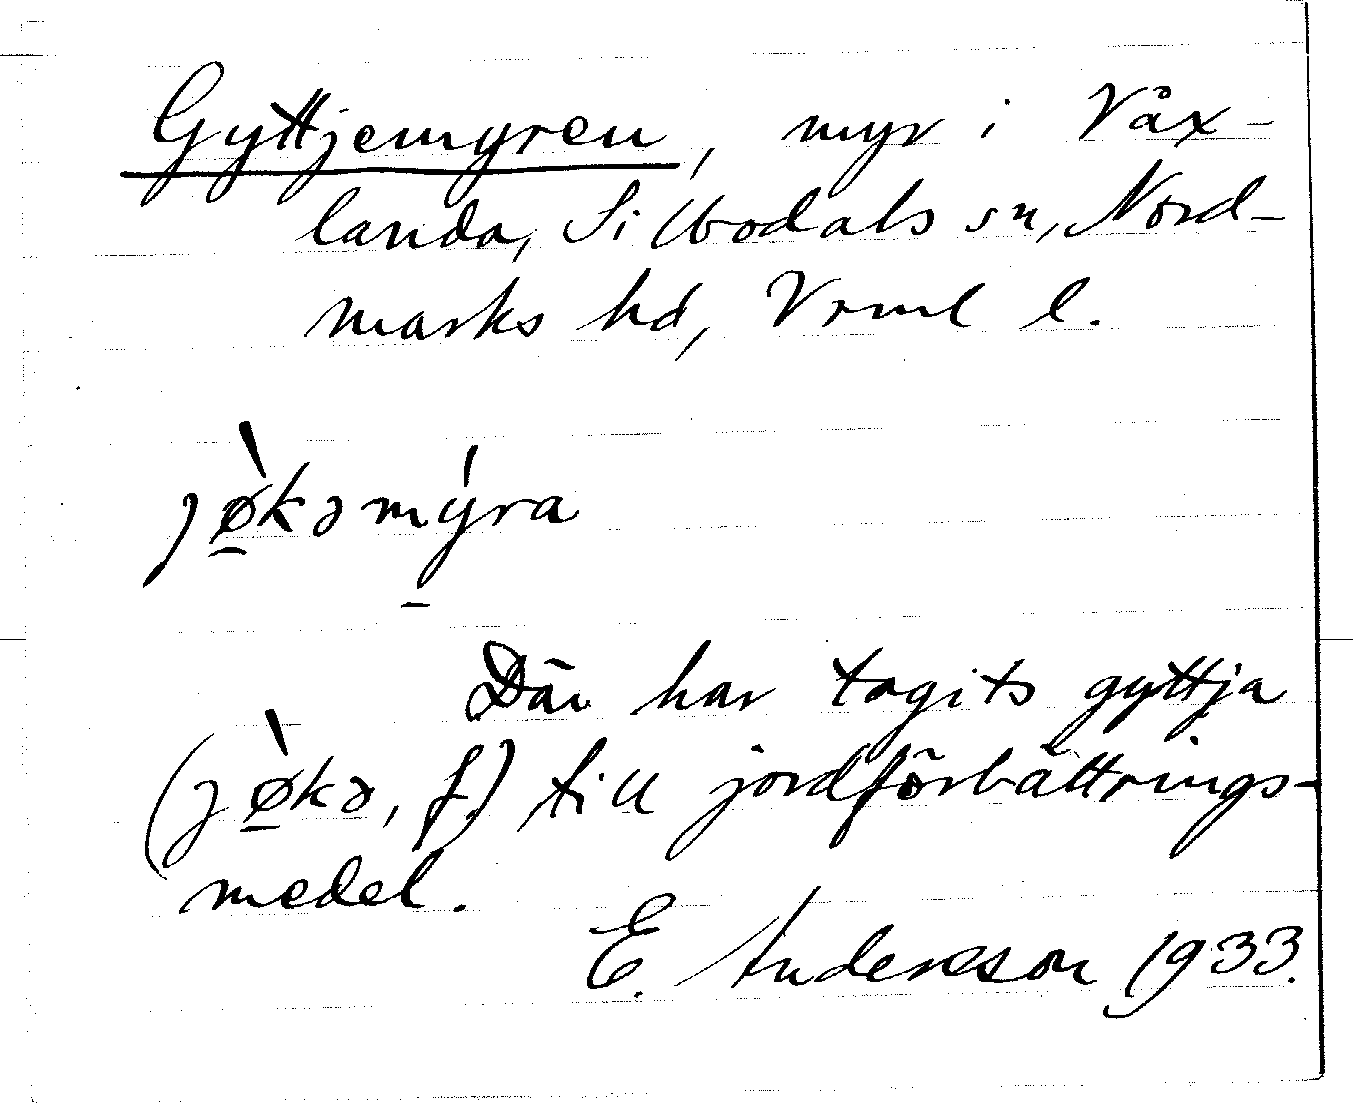 Gyttjemyren, myr i Våx-
landa, Silbodals sn, Nord-
marks hd, Vrml l.
jø̲̀kəmý̲ra
Där har tagits gyttja
(jø̲̀kə, f.) till jordförbättrings-
medel.
E. Andersson 1933.